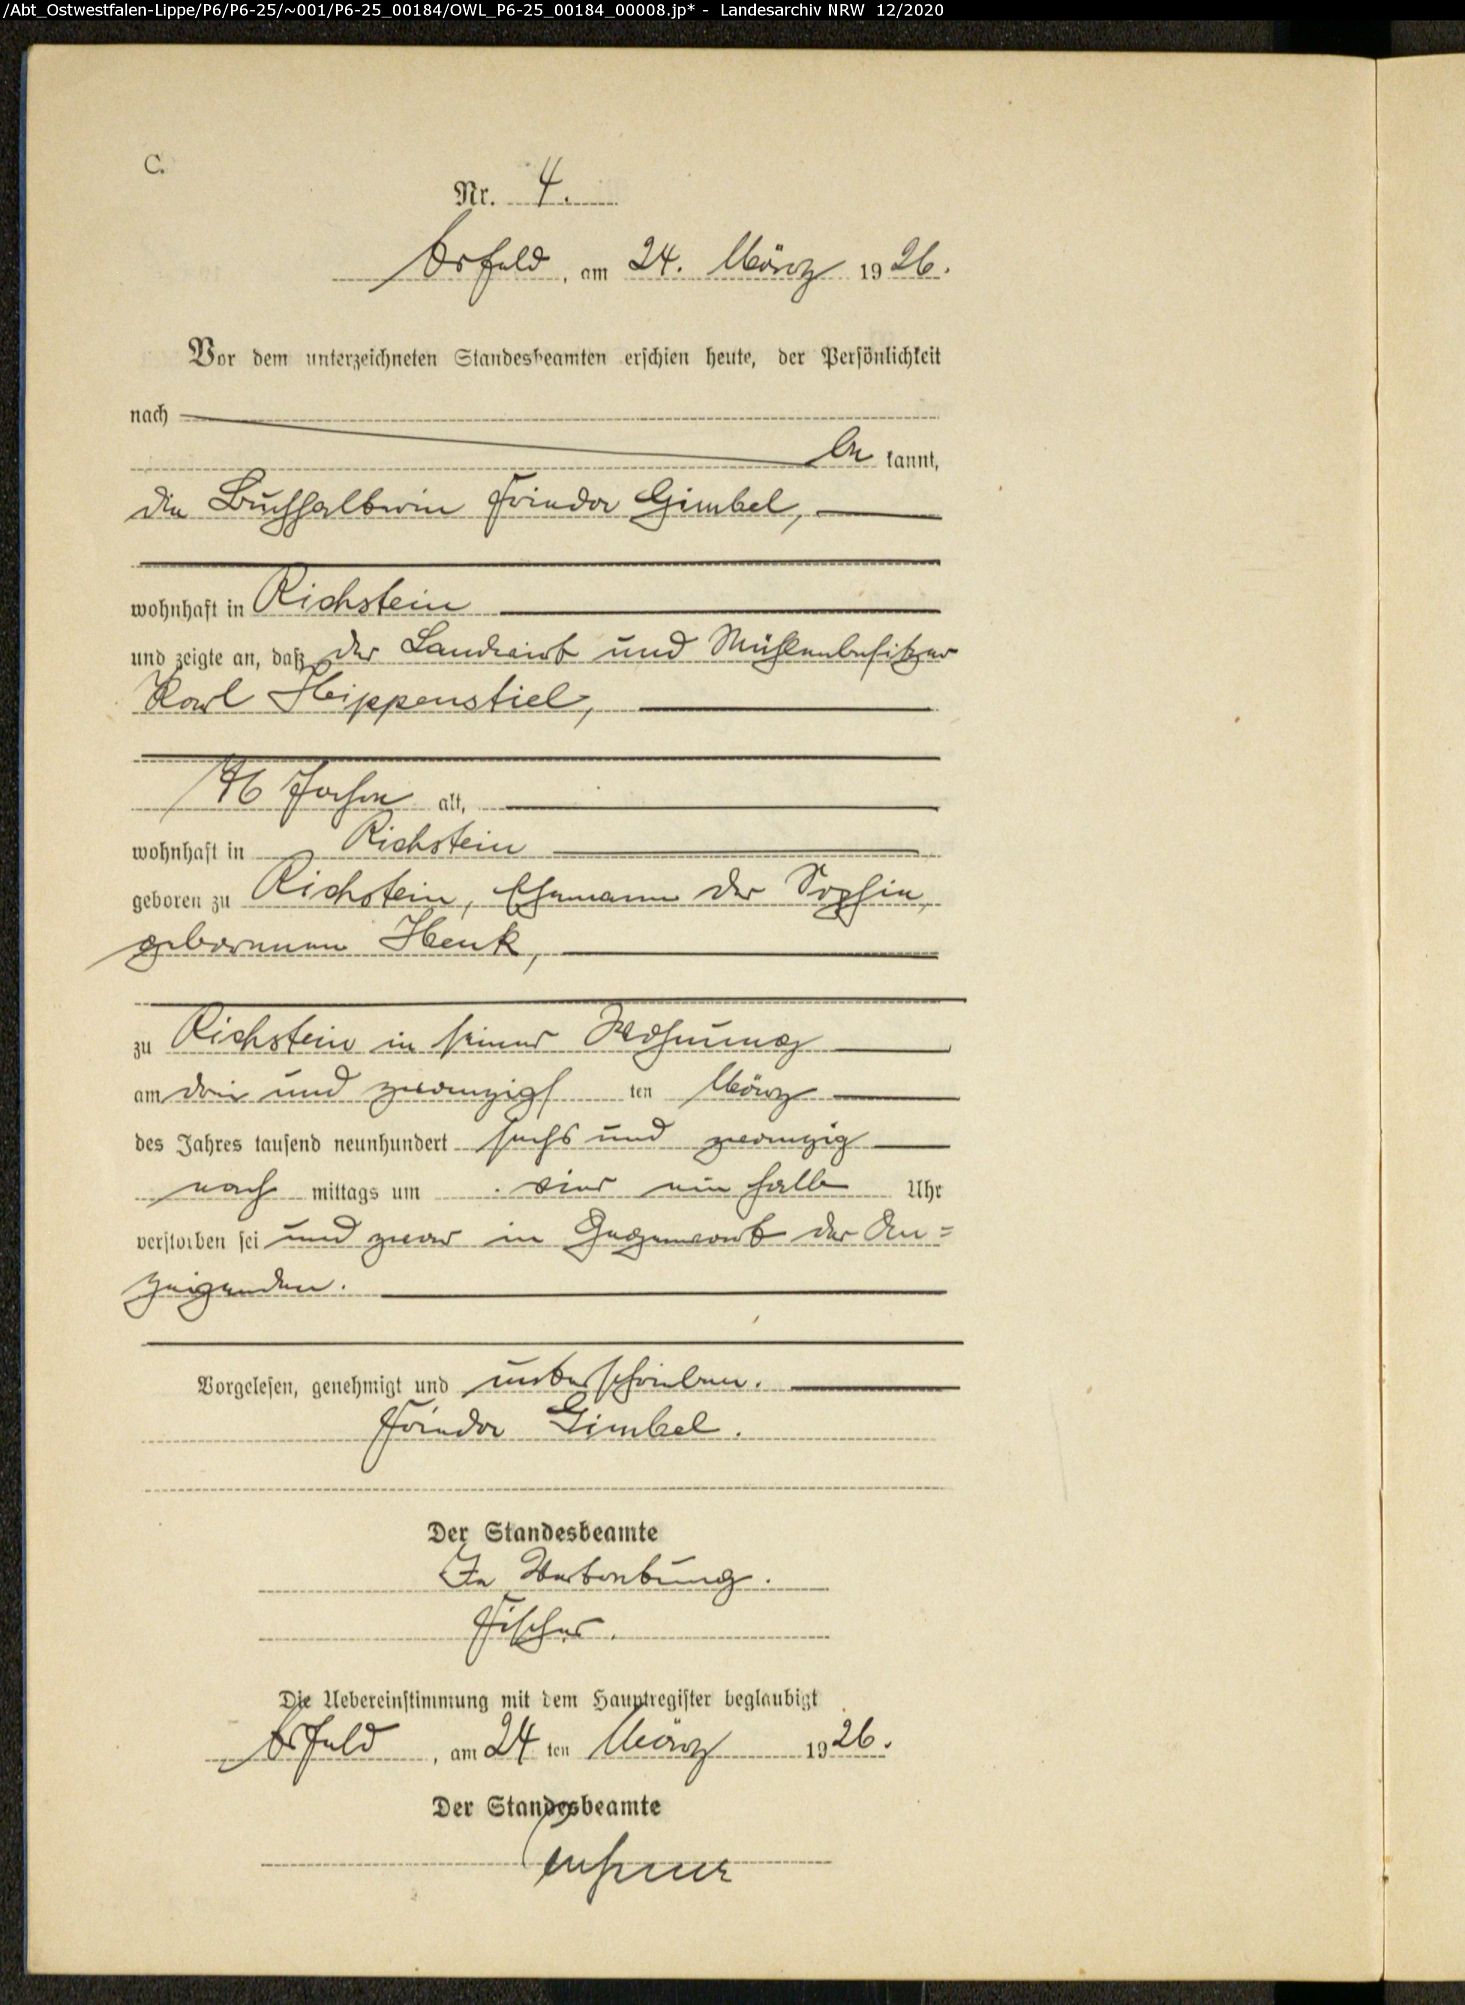 /Abt_Ostwestfalen-Lippe/P6/P6-25/~001/P6-25_00184/OWL_P6-25_00184_00008.jp* - Landesarchiv NRW 12/2020
C.
Nr. 4.
Arfeld, am 24. März 1926.
Vor dem unterzeichneten Standesbeamten erschien heute, der Persönlichkeit
nach
be kannt,
die Buchhalterin Frieda Gimbel,
wohnhaft in Richstein
und zeigte an, daß der Landwirt und Mühlenbesitzer
Karl Hippenstiel,
46 Jahre alt,
wohnhaft in Richstein
geboren zu Richstein, Ehemann der Sophie,
geborenen Henk,
zu Richstein in seiner Wohnung
am drei und zwanzigs ten März
des Jahres tausend neunhundert sechs und zwanzig
nach mittags um vier ein halb Uhr
verstorben sei und zwar in Gegenwart der An=
zeigenden.
Vorgelesen, genehmigt und unterschrieben.
Frieda Gimbel.
Der Standesbeamte
In Vertretung.
Fischer.
Die Uebereinstimmung mit dem Hauptregister beglaubigt
Arfeld, am 24 ten März 1926.
Der Standesbeamte